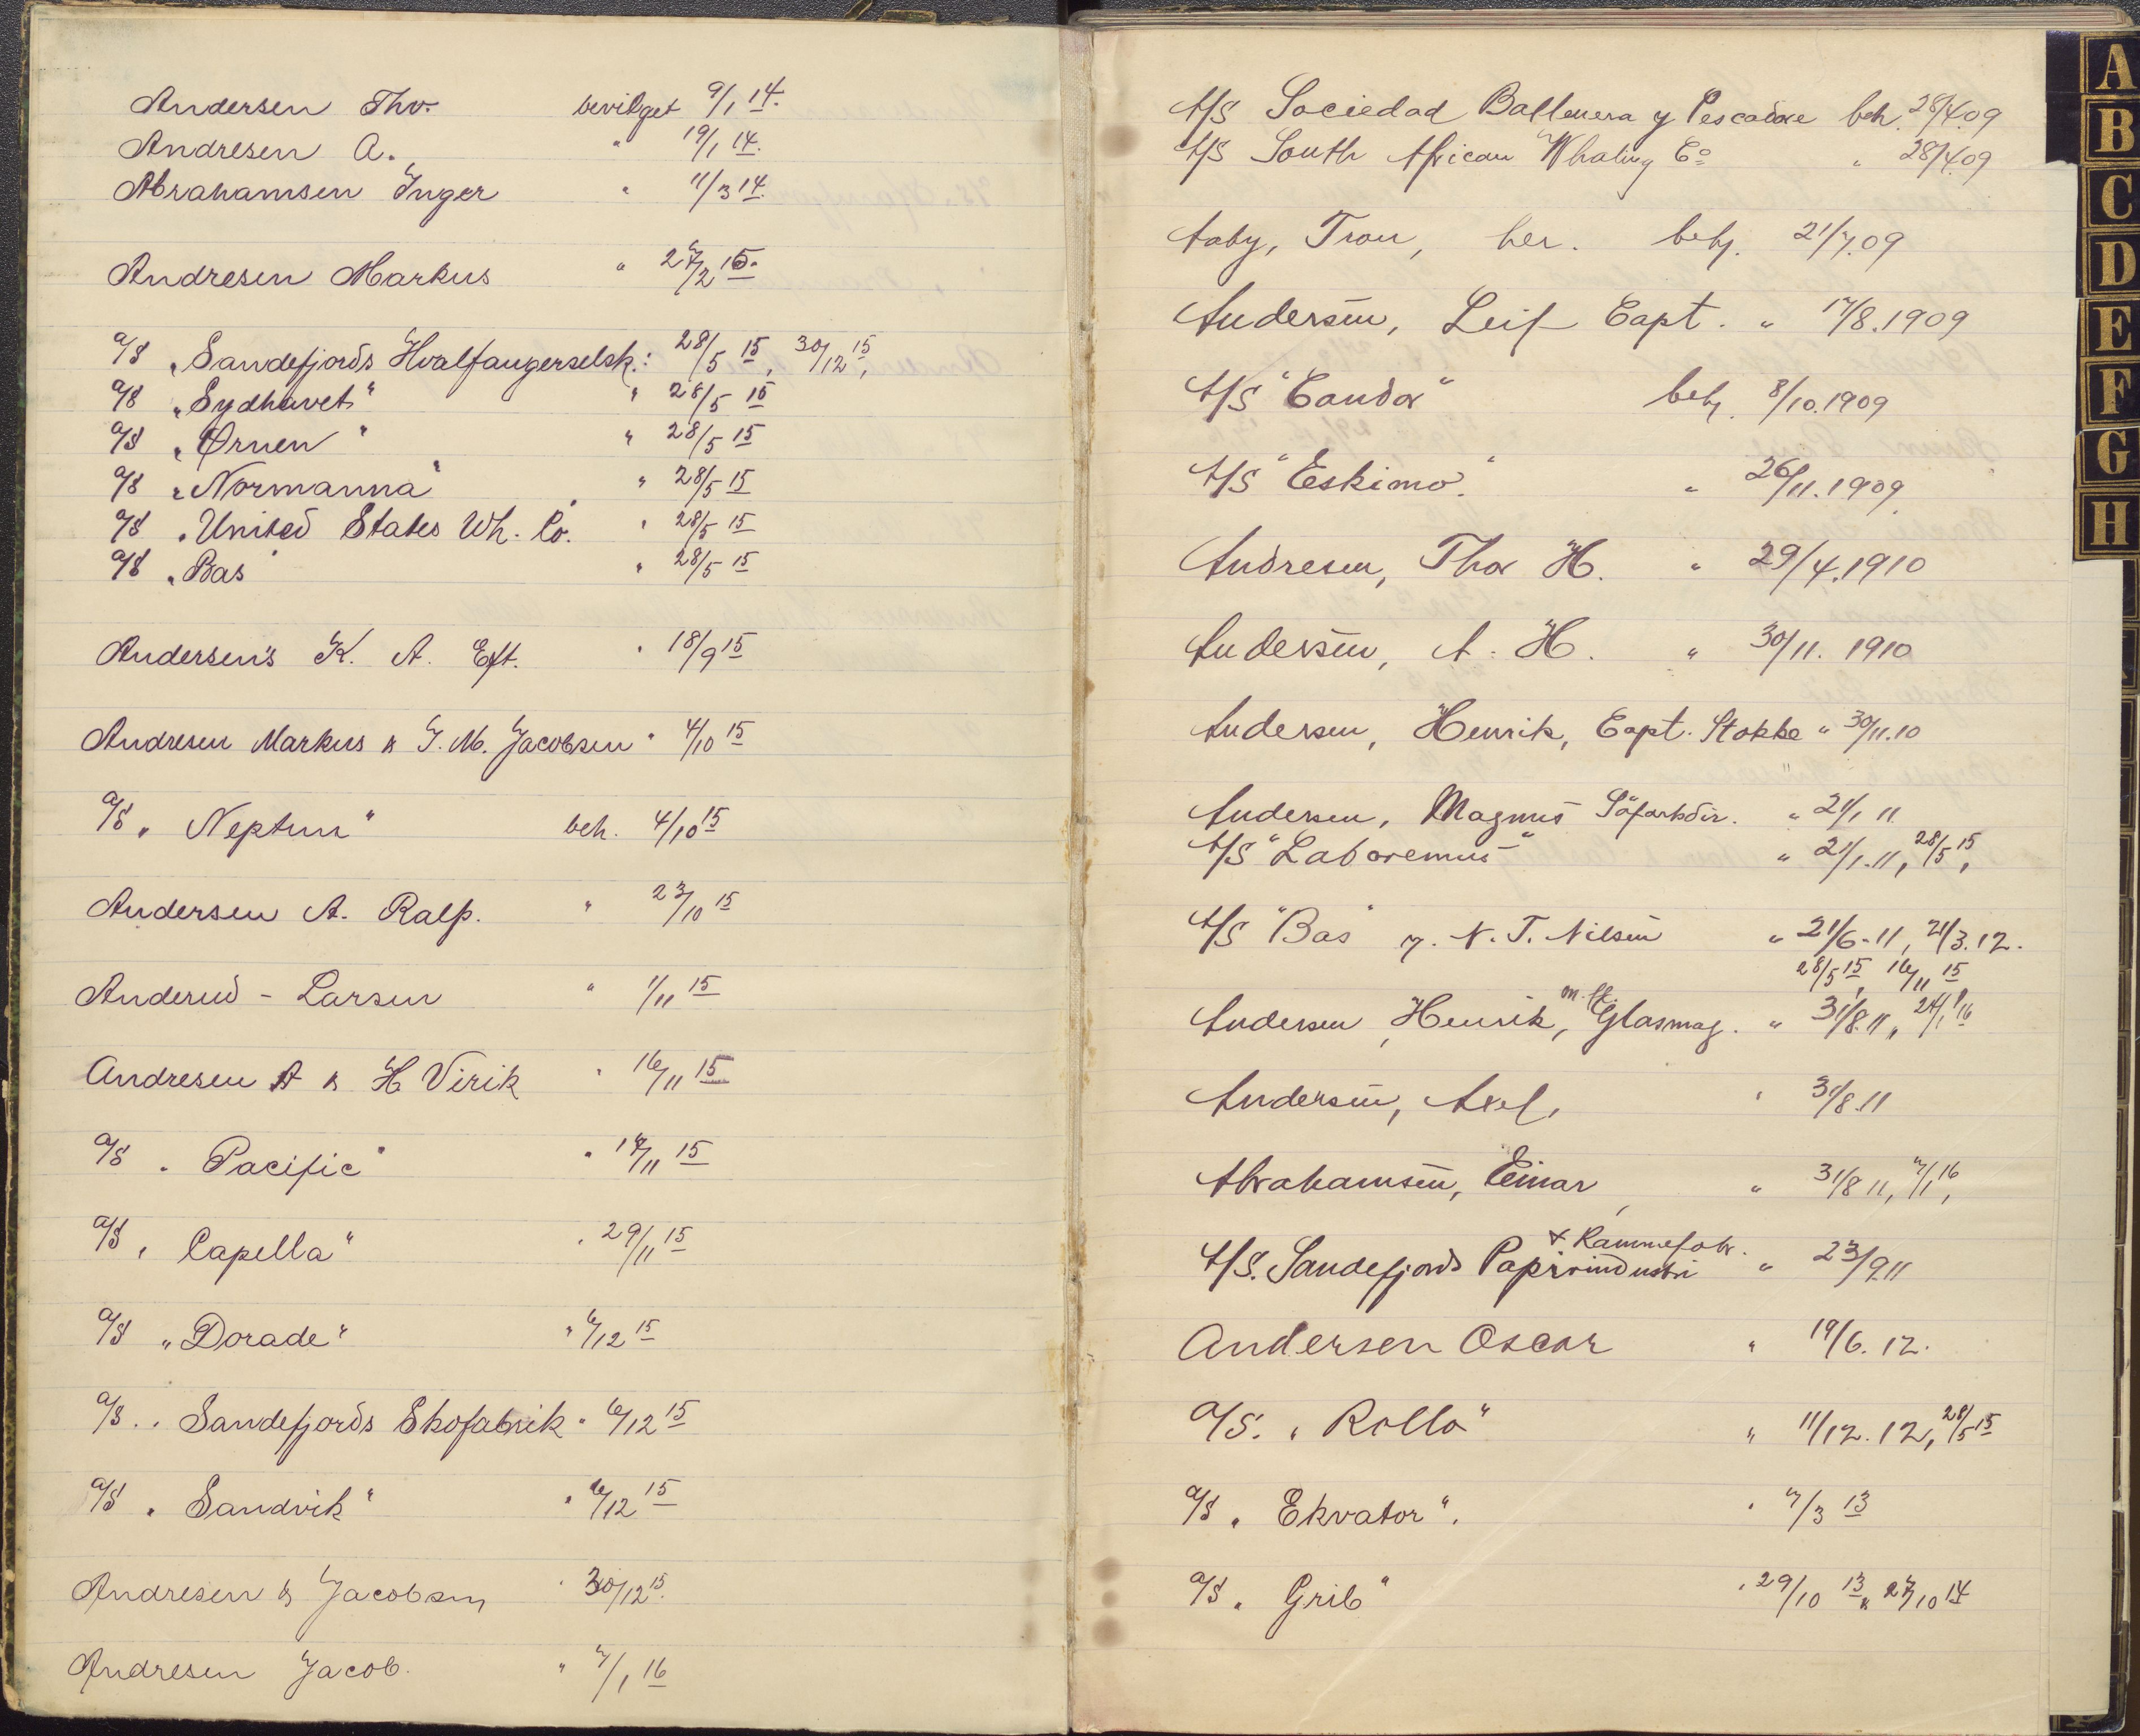 Andersen Thv. bevilget 9/1 14.
Andresen A. " 19/1 14.
Abrahamsen Inger " 11/3 14.
Andresen Markus " 27/2 15.
A/S „Sandefjords Hvalfangerselsk.: 28/5 15, 30/12 15,
A/S „Sydhavet" " 28/5 15
A/S „Ørnen" " 28/5 15
A/S „Normanna" " 28/5 15
A/S „United States Wh. Co. " 28/5 15
A/S „Bas" " 28/5 15
Andersen's K. A. Eft. " 18/9 15
Andresen Markus & J. M. Jacobsen " 4/10 15
A/S „Neptun" beh. 4/10 15
Andersen A. Ralp. " 23/10 15
Anderud - Larsen " 1/11 15
Andresen A & H Virik " 16/11 15
A/S „Pacific" " 17/11 15
A/S „Capella" " 29/11 15
A/S „Dorade" " 6/12 15
A/S „Sandefjords Skofabrik " 6/12 15
A/S „Sandvik" " 6/12 15
Andresen & Jacobsen " 30/12 15.
Andresen Jacob. " 7/1 16
A/S Sociedad Ballenera y Pescadore beh. 28/4.09
A/S South African Whaling Co " 28/4.09
Aaby, Tron, her. beh. 21/7.09
Andersen, Leif Capt. " 17/8.1909
A/S "Condor" beh. 8/10.1909
A/S "Eskimo." " 26/11.1909.
Andresen, Thor H. " 29/4.1910
Andersen, A. H. " 30/11. 1910
Andersen, Henrik, Capt. Stokke " 30/11.10
Andersen, Magnus Söfartsdir. " 21/1 11
A/S "Laboremus" " 21/1.11, 28/5 15,
A/S "Bas" v. N. T. Nilsen " 21/6-11, 21/3.12.
28/5 15, 16/11 15
Andersen, Henrik, Glasmag. " 31/8.11, 24/1 16
Andersen, Axel, " 31/8.11
Abrahamsen, Einar " 31/8 11, 7/1 16,
& Rammefabr.
A/S. Sandefjords Papirindustri " 23/9.11
Andersen Oscar " 19/6. 12.
A/S. „Rollo" " 11/12. 12, 28/5 15
A/S „Ekvator". " 7/3 13
A/S „Grib" " 29/10 13, 27/10 14
A
B
C
D
E
F
G
H